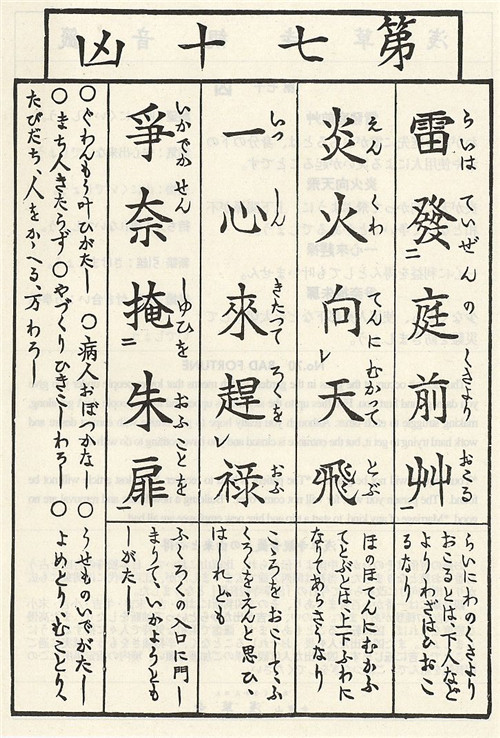 第七十凶
らいは ていぜんの くさより おこる
雷發二庭前艸一
らいにわのくさより
おこるとは、下人など
よりわざはひおこ
るなり
えん くわ てんに むかつて とぶ
炎火向レ天飛
ほのほてんにむかふ
てとぶとは、上下ふわに
なりてあらさうなり
いつ しん きたつて ろくを おふ
一心來趕レ禄
こゝろをおこしてふ
くろくをえんと思ひ、
はしれども
いかでか せん しゆひを おふことを
爭奈掩二朱扉一
ふくろくの入口に門し
まりていかよりとも
しがたし
○ぐわんも叶ひがたし ○病人おぼつかな ○うせものいでがたし
○まち人きたらず ○やづくりひきこしわろし ○よめとり、むことり、
たびだち、人をかゝへる、万わろし